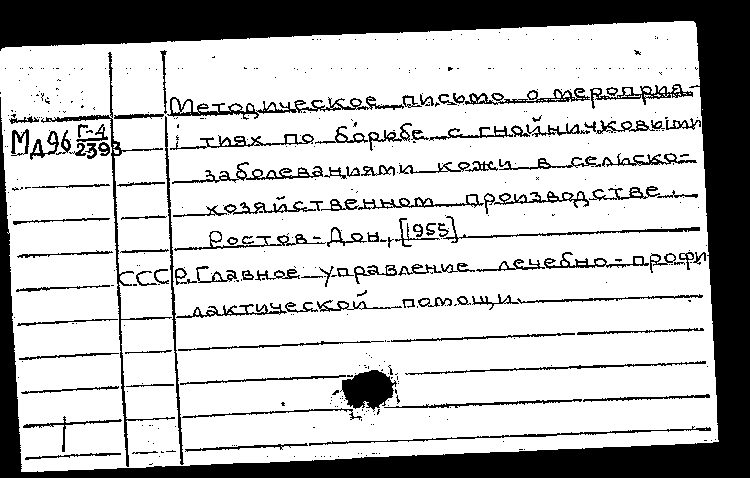 Методическое письмо о мероприя-
Мд96 Г-4/2393 тиях по борьбе с гнойничковыми
заболеваниями кожи в сельско-
хозяйственном производстве.
Ростов-Дон, [1955].
СССР. Главное управление лечебно-профи
лактической помощи.